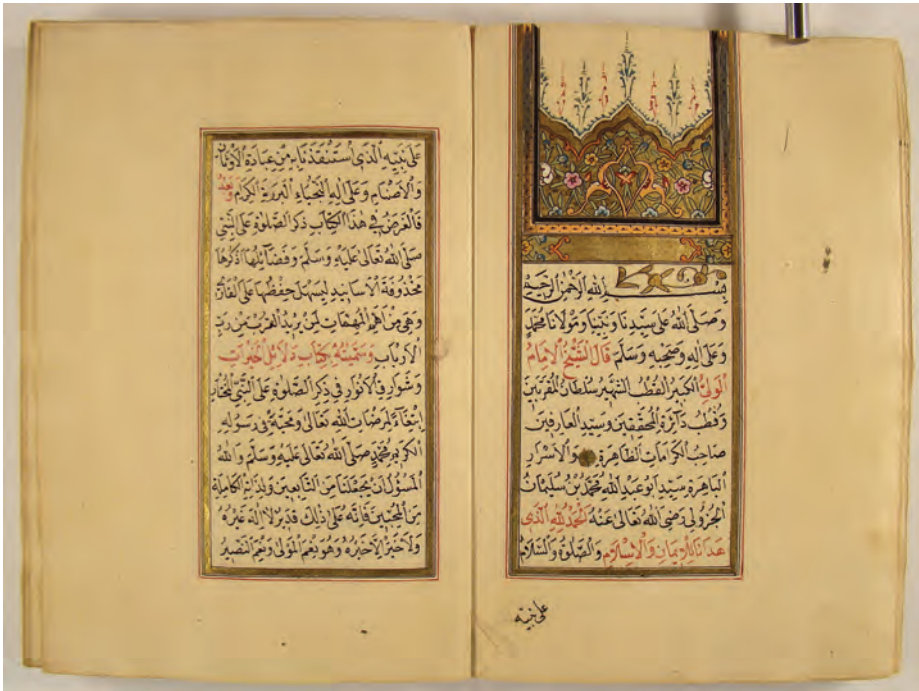 بسم الله الرحمن الرحيم
وَصَلَّى اللهُ عَلَى سَيِّدِنَا وَنَبِيِّنَا وَمَوْلَانَا مُحَمَّدٍ
وَعَلَى اٰلِهِ وَصَحْبِهِ وَسَلَّمَ قَالَ الشَّيْخُ الْاِمَامُ
الْوَلِيُّ الْكَبِيرُ الْقُطْبُ الشَّهِيرُ سُلْطَانُ الْمُقَرَّبِينَ
وَقُطْبُ دَائِرَةِ الْمُحَقِّقِينَ وَسَيِّدُ الْعَارِفِينَ
صَاحِبُ الْكَرَامَاتِ الظَّاهِرَةِ وَالْاَسْرَارِ
الْبَاهِرَةِ سَيِّد اَبُو عَبْدِ اللهِ مُحَمَّدُ بْنُ سُلَيْمَانَ
الْجُزُولِي رَضِيَ اللهُ تَعَالٰى عَنْهُ اَلْحَمْدُ لِلّٰهِ الَّذِي
هَدَانَا لِلْاِيمَانِ وَالْاِسْلَامِ وَالصَّلٰوةُ وَالسَّلَامُ
على نبيه
عَلٰى نَبِيِّهِ الَّذِي اسْتَنْقَذَنَا بِهِ مِنْ عِبَادَةِ الْاَوْثَانِ
وَالْاَصْنَامِ وَعَلٰى اٰلِهِ النُّجَبَاءِ الْبَرَرَةِ الْكِرَامِ وَبَعْدُ
فَالْغَرَضُ فِي هٰذَا الْكِتَابِ ذِكْرُ الصَّلٰوةِ عَلَى النَّبِيِّ
صَلَّى اللهُ تَعَالٰى عَلَيْهِ وَسَلَّمَ وَفَضَائِلُهَا اَذْكُرُهَا
مَحْذُوفَةَ الْاَسَانِيدِ لِيَسْهُلَ حِفْظُهَا عَلَى الْقَارِئِ
وَهِيَ مِنْ اَهَمِّ الْمُهِمَّاتِ لِمَنْ يُرِيدُ الْقُرْبَ مِنْ رَبِّ
الْاَرْبَابِ وَسَمَّيْتُهُ بِكِتَابِ دَلَائِلِ الْخَيْرَاتِ
وَشَوَارِقِ الْاَنْوَارِ فِي ذِكْرِ الصَّلٰوةِ عَلَى النَّبِيِّ الْمُخْتَارِ
اِبْتِغَاءً لِمَرْضَاتِ اللهِ تَعَالٰى وَمَحَبَّةً فِي رَسُولِهِ
الْكَرِيمِ مُحَمَّدٍ صَلَّى اللهُ تَعَالٰى عَلَيْهِ وَسَلَّمَ وَاللهُ
الْمَسْؤُلُ اَنْ يَجْعَلَنَا مِنَ التَّابِعِينَ وَلِذَاتِهِ الْكَامِلَةِ
مِنَ الْمُحِبِّينَ فَاِنَّهُ عَلٰى ذٰلِكَ قَدِيرٌ لَا اِلٰهَ غَيْرُهُ
وَلَا خَيْرَ اِلَّا خَيْرُهُ وَهُوَ نِعْمَ الْمَوْلٰى وَنِعْمَ النَّصِيرُ